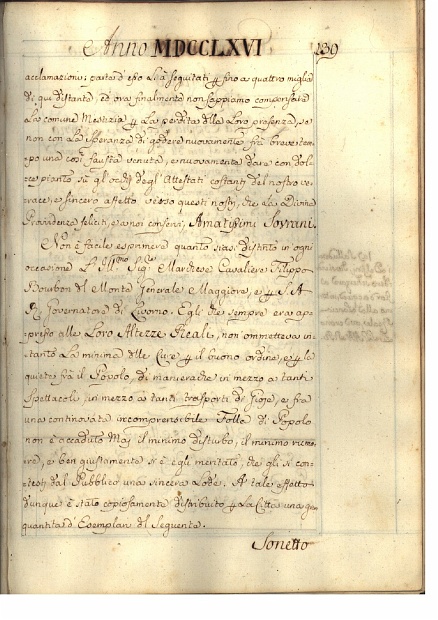 Anno MDCCLXVI 239
acclamazioni; parte d'essi Li à seguitati fino a quattro miglia
di qui distante, ed ora finalmente non sappiamo compensare
La comune Mestizia La perdita della Loro presenza, se
non con La Speranza di godere nuovamente frà breve tem=
po una così fausta venuta, e nuovamente dare con dol=
ce pianto degl'Attestati costanti del nostro ve=
race, e sincero affetto verso questi nostri, che La Divina
Providenza feliciti, e a noi conservi, Amatissimi Sovrani.
Non è facile esprimere quanto siasi distinto in ogni
occasione L'Ill.mo Sig.r Marchese Cavaliere Filippo
Bourbon del Monte Generale Maggiore, e S. A.
R. Governatore di Livorno. Egli che sempre era ap=
presso alle Loro Altezze Reali, non ommetteva in=
tanto La minima delle Cure il buono ordine, e la
quiete frà il Popolo, di manierache in mezzo a tanti
Spettacoli, in mezzo a tanti trasporti di Gioje, e frà
una continovata incomprensibile Folla di Popolo
non è accaduto Maj il minimo disturbo, il minimo
e ben giustamente si è egli meritato, che gli si con=
testi dal Pubblico una sincera Lode. A tale effetto
dunque è stato copiosamente distribuito La Città una gran
quantità d'Esemplari del Seguente.
Sonetto